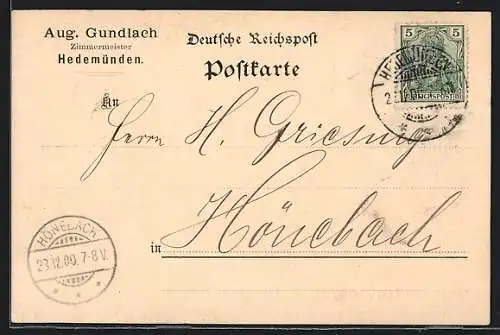 Aug. Gundlach
Zimmermeister
Hedemünden.
Deutsche Reichspost
Postkarte
5 5
REICHSPOST
An
Herrn H.
in Hönebach
HÖNEBACH
23.12.00.7-8V.